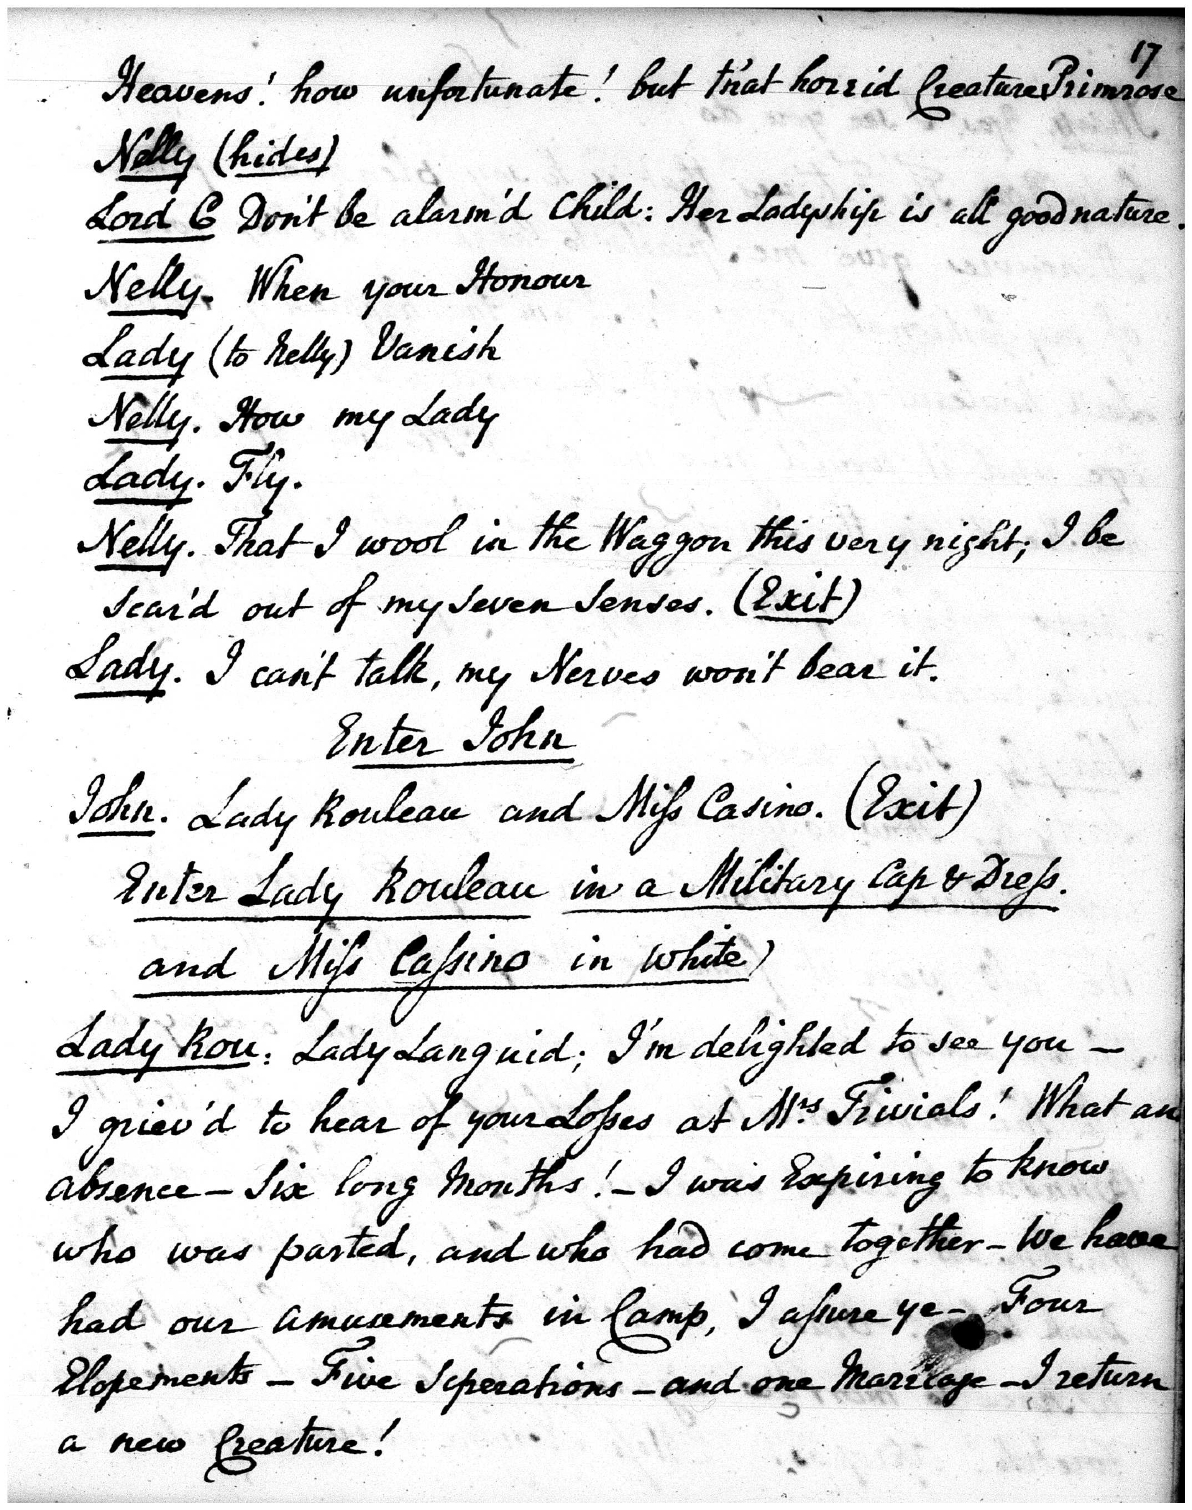 17
Heavens! how unfortunate! but that horrid Creature Primrose
Nelly (hides)
Lord C Don't be alarm'd Child: Her Ladyship is all good nature.
Nelly. When your Honour
Lady (to Nelly) Vanish
Nelly. How my Lady
Lady. Fly.
Nelly. That I wool in the Waggon this very night; I be
scar'd out of my seven senses. (Exit)
Lady. I can't talk, my Nerves won't bear it.
Enter John
John. Lady Rouleau and Miſs Casino. (Exit)
Enter Lady Rouleau in a Military Cap & Dreſs.
and Miſs Caſsino in white)
Lady Rou: Lady Languid; I'm delighted to see you —
I griev'd to hear of your Loſses at Mrs Trivials! What an
absence — Six long Months! — I was Expiring to know
who was parted, and who had come together — We have
had our amusements in Camp, I aſsure ye — Four
Elopements — Five Seperations — and one Marriage — I return
a new Creature!